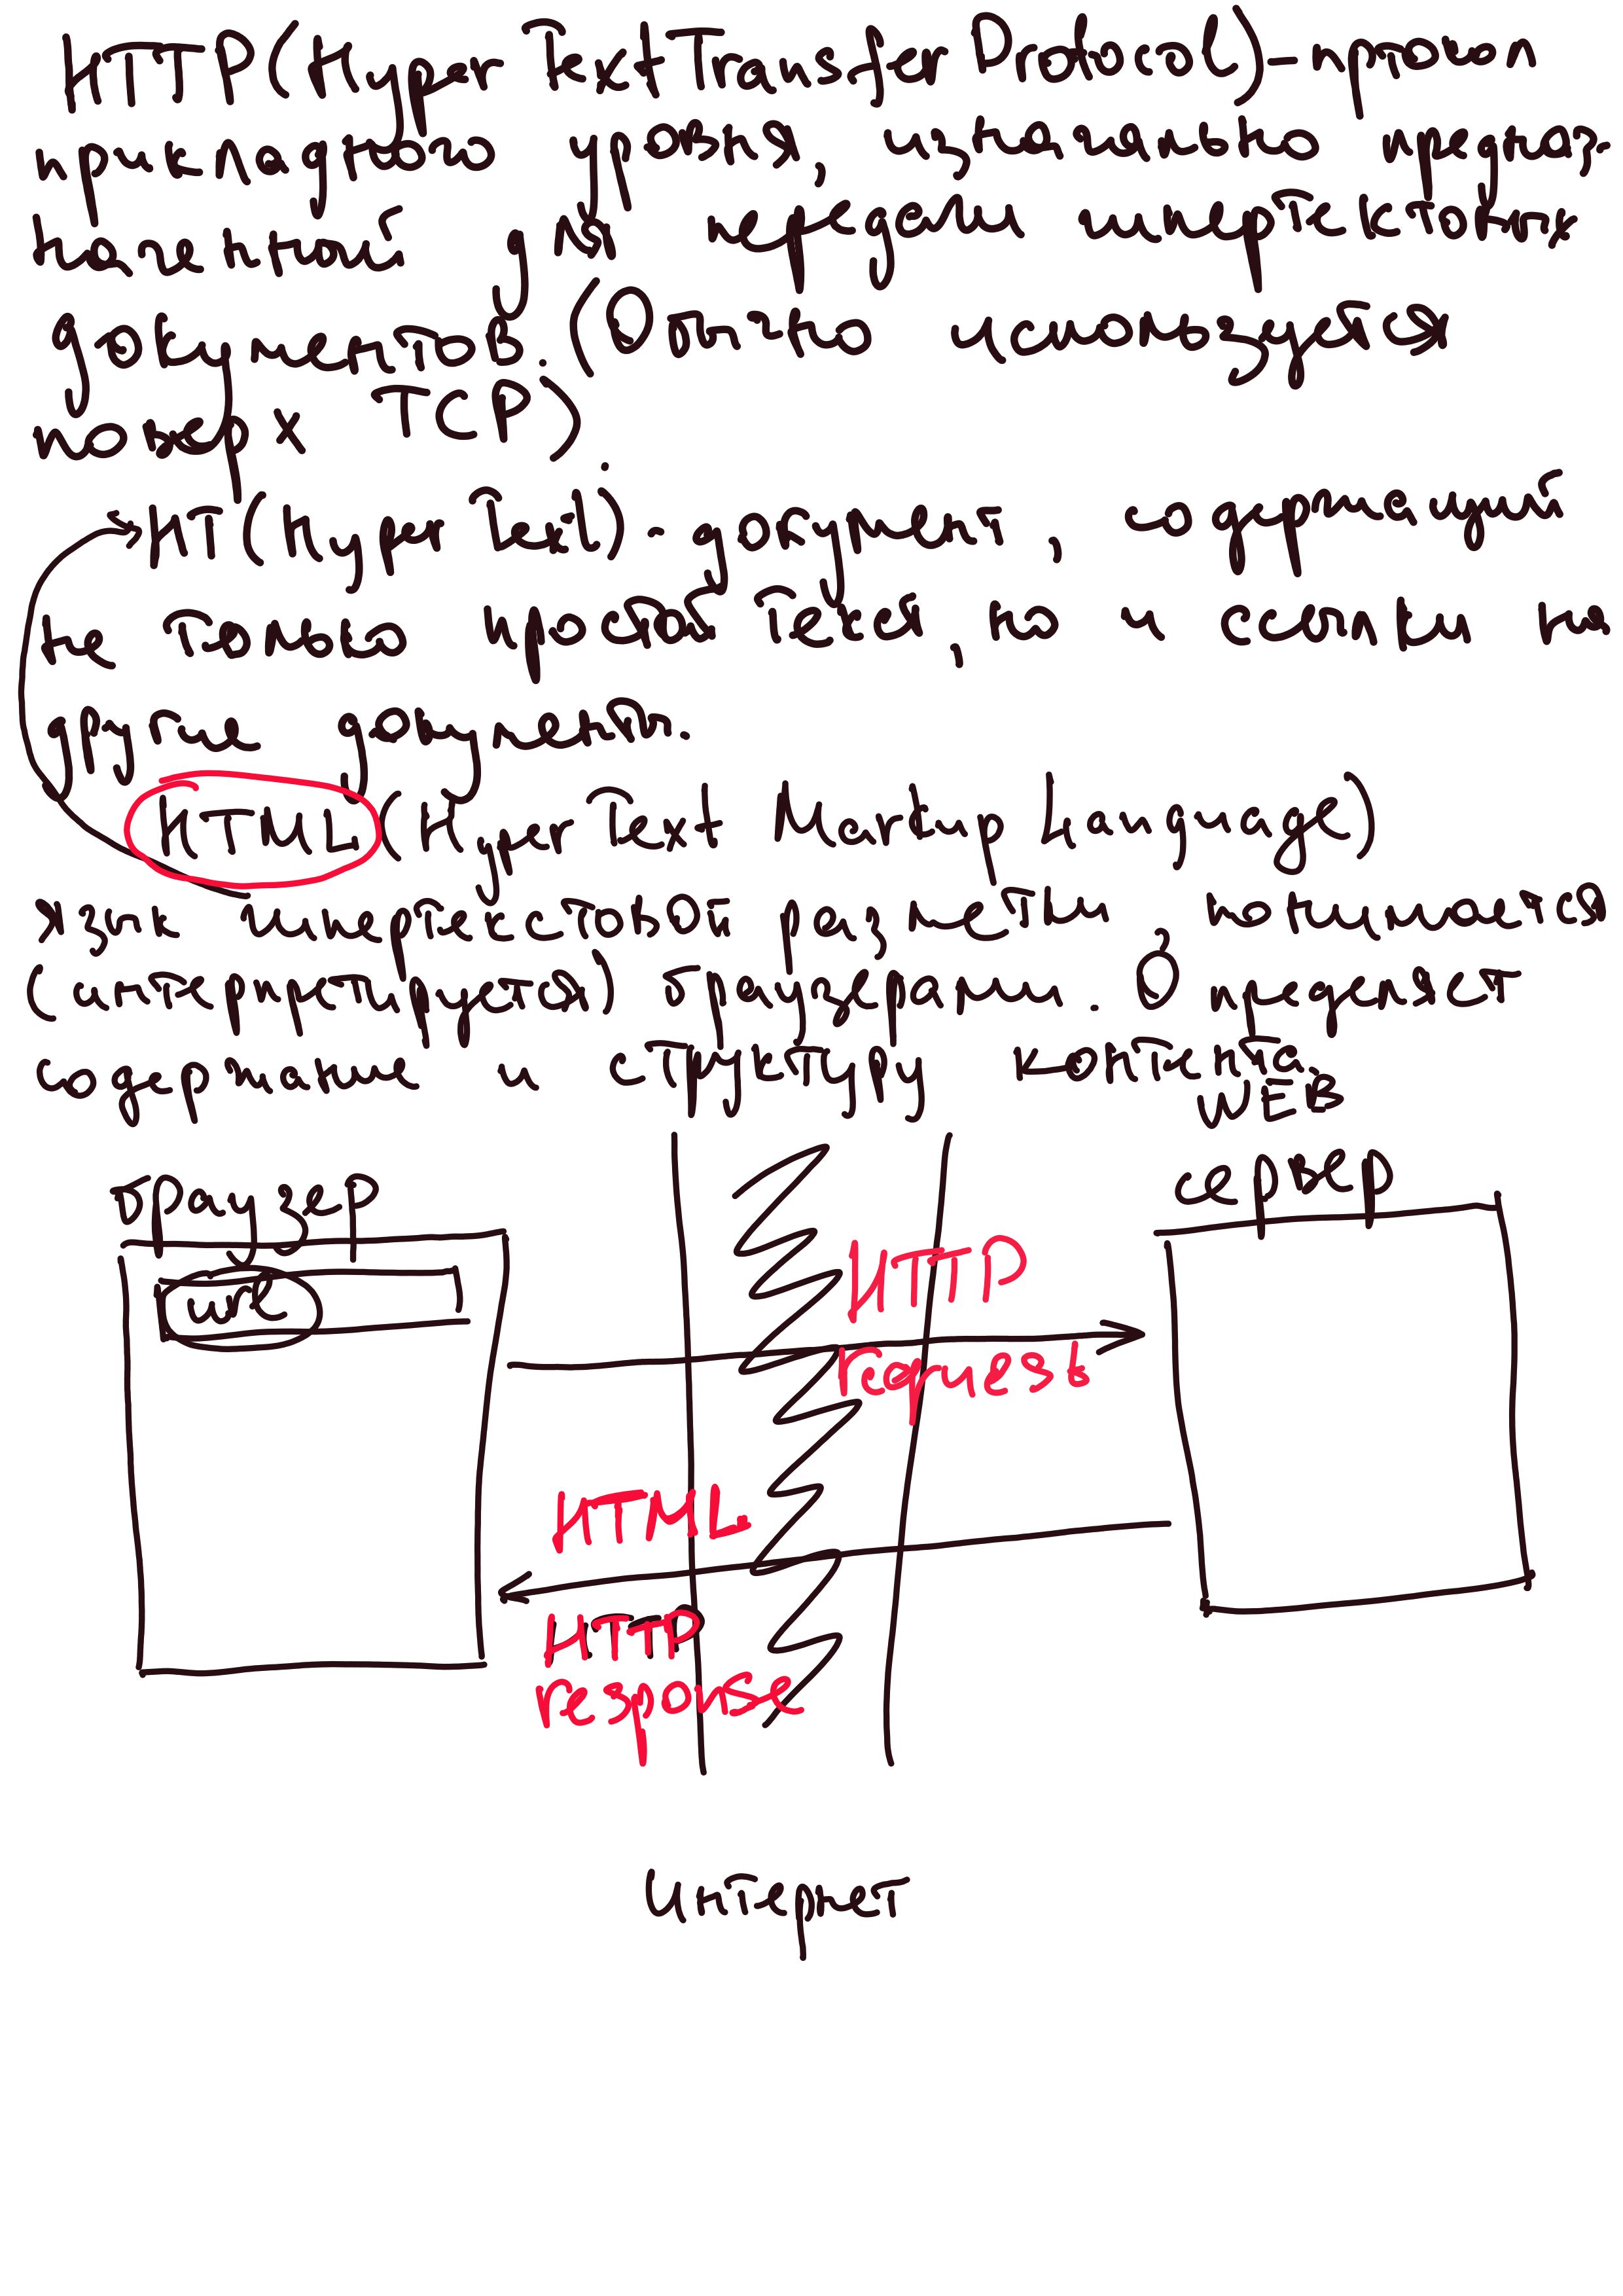 HTTP (Hyper Text Transfer Protocol) - протокол
прикладного уровня, изначально предназ-
наченный для передачи гипертекстовых
документов. (Обычно используется
поверх TCP).
HT (Hyper Text) - документ, содержащий
не только простой текст, но и ссылки на
другие документы.
HTML (Hyper Text Markup Language)
язык гипертекстовой разметки, понимается
(интерпретируется) браузерами. Определяет
содержание и структуру контента.
WEB
браузер
сервер
url
HTTP
request
HTML
HTTP
response
Интернет